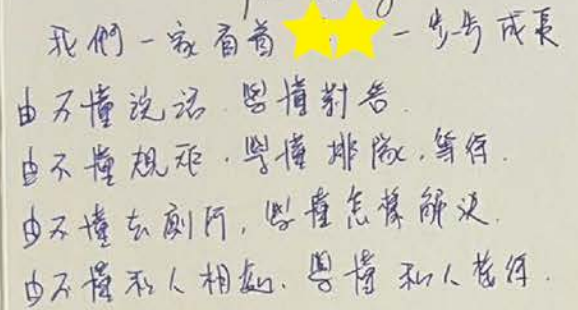 我們一家看著一步一步成長
由不懂說話.學懂對答.
由不懂規矩,學懂排隊,等待.
由不懂去廁所,學懂怎樣解決.
由不懂和人相處、學懂和人